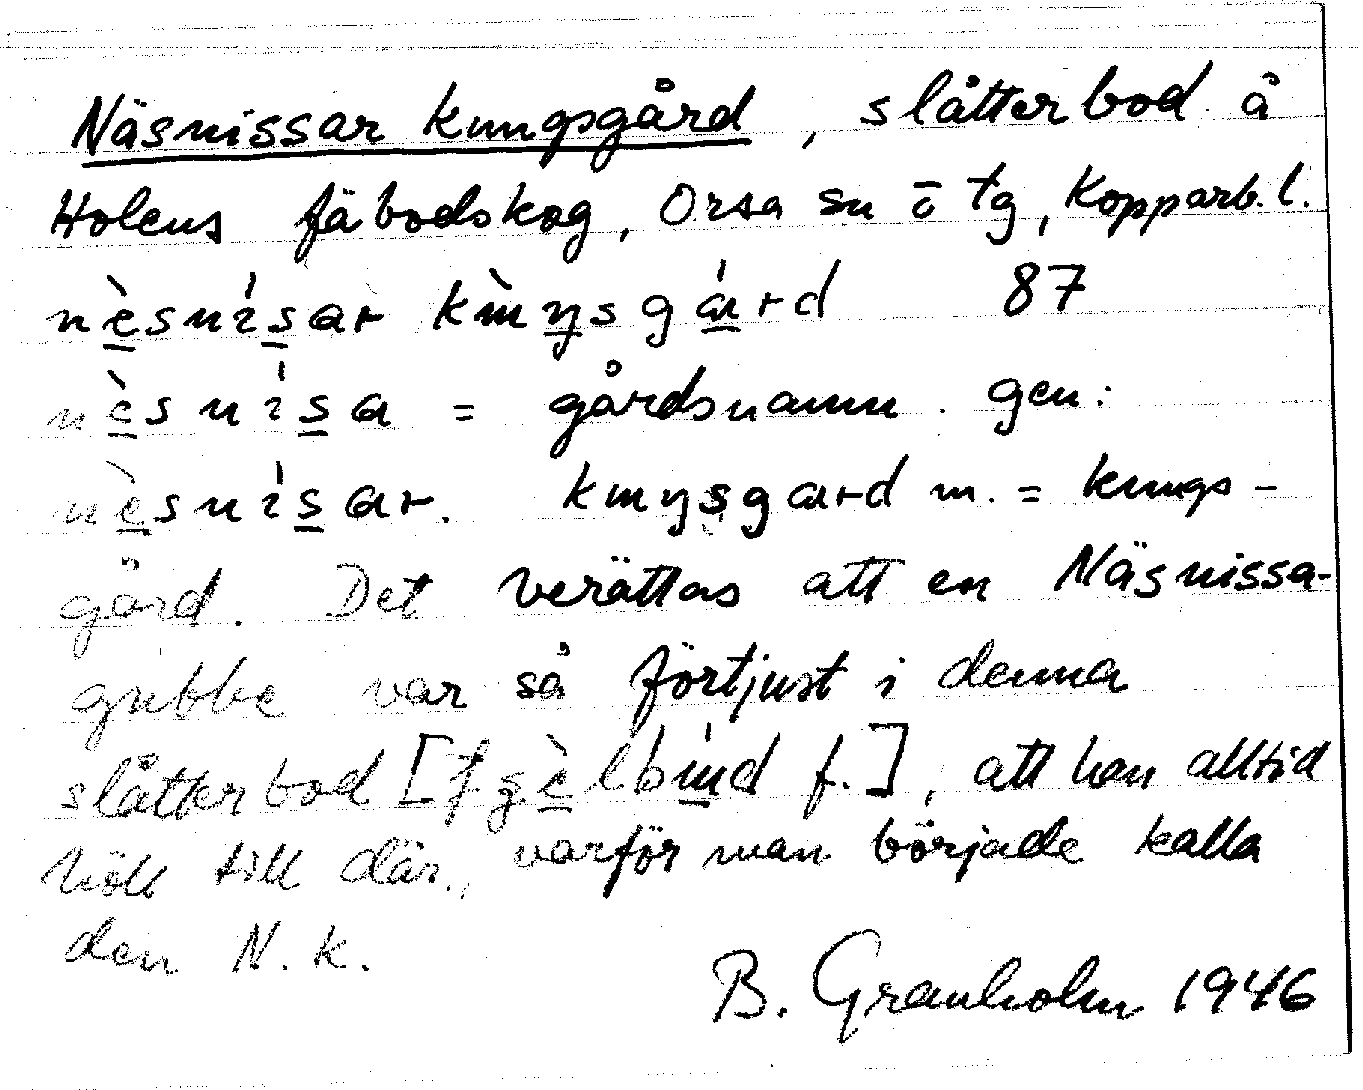 Näsnissar kungsgård, slåtterbod å
Holens fäbodskog, Orsa sn o tg, Kopparb. l.
nèsnísar kùŋsgárd 87
nèsnísa = gårdsnamn. gen:
nèsnísar. kuŋsgard m. = kungs-
gård. Det berättas att en Näsnissa-
gubbe var så förtjust i denna
slåtterbod [f.], att han alltid
höll till där, varför man började kalla
den N. k.
B. Granholm 1946